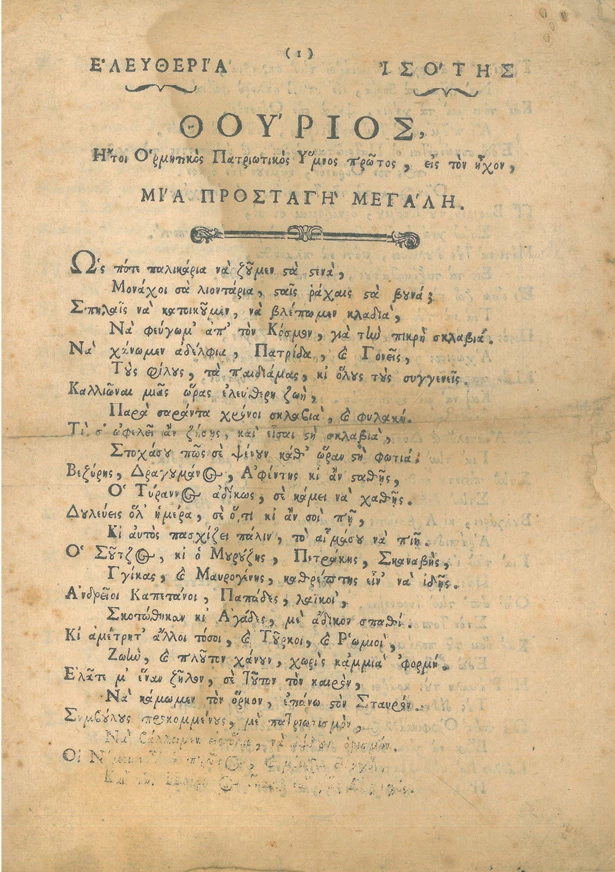 (1)
ΕʼΛΕΥΘΕΡΙʼΑ ἸΣΟʼΤΗΣ
ΘΟΥʼΡΙΟΣ,
Ηʼ͂τοι Οʽρμητικὸς Πατριωτικὸς Υʽ́μνος πρῶτος, εἰς τὸν ἦχον,
ΜΙʼΑ ΠΡΟΣΤΑΓΗʼ ΜΕΓΑʼΛΗ.
Ως πότε παλικάρια νὰ ζοῦμεν ϛὰ ϛενὰ,
Μονάχοι σὰ λιοντάρια, ϛαῖς ράχαις ϛὰ βουνά;
Σπηλαῖς νὰ κατοικοῦμεν, νὰ βλέπωμεν κλαδιὰ,
Νὰ φεύγωμʼ ἀπʼ τὸν Κόσμον, γιὰ τὴν πικρὴ σκλαβιά.
Νὰ χάνωμεν ἀδέλφια, Πατρίδα, ϗ Γονεῖς,
Τοὺς φίλους, τὰ παιδιάμας, κι ὅλους τοὺς συγγενεῖς.
Καλλιῶναι μιᾶς ὥρας ἐλεύθερη ζωὴ,
Παρὰ σαράντα χρόνοι σκλαβιὰ, ϗ φυλακή.
Τί σʼ ὠφελεῖ ἂν ζήσῃς, καὶ εἶσαι ϛὴ σκλαβιὰ,
Στοχάσου πῶς σὲ ψένουν καθʼ ὥραν ϛὴ φωτιά.
Βεζύρης, Δραγουμάνος, Αʼφέντης κι ἂν ϛαθῇς,
Οʽ Τύραννος ἀδίκως, σὲ κάμει νὰ χαθῇς.
Δουλεύεις ὅλʼ ἡμέρα, σὲ ὅ,τι κι ἂν σοὶ πῇ,
Κι αὐτὸς πασχίζει πάλιν, τὸ αἷμάσου νὰ πιῇ.
Οʽ Σοῦτζος, κι ὁ Μουρούζης, Πετράκης, Σκαναβῆς,
Γγίκας, ϗ Μαυρογένης, καθρέπτης εἶνʼ νὰ ἰδῇς.
Αʼνδρεῖοι Καπετάνοι, Παπάδες, λαϊκοὶ,
Σκοτώθηκαν κι Αʼγάδες, μὲ ἄδικον σπαθί.
Κι ἀμέτρητʼ ἄλλοι τόσοι, ϗ Τοῦρκοι, ϗ Ρʽωμιοὶ,
Ζωὴν, ϗ πλοῦτον χάνουν, χωρὶς κἀμμιὰ ʼφορμή.
Εʼλᾶτε μʼ ἕναν ζῆλον, σὲ τοῦτον τὸν καιρὸν,
Νὰ κάμωμεν τὸν ὅρκον, ἐπάνω ϛὸν Σταυρόν.
Συμβούλους προκομμένους, μὲ πατριωτισμὸν,
Νὰ βάλλωμεν
Οἱ